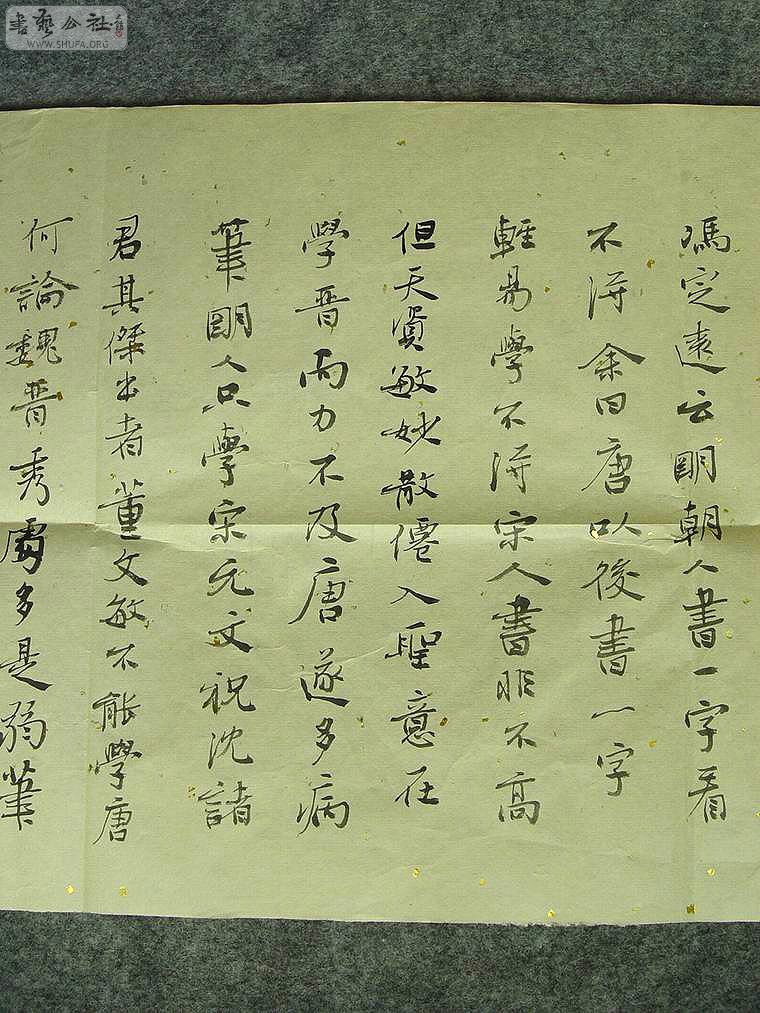 馮定遠云明朝人書一字看
不得余曰唐以後書一字
輕易學不得宋人書非不高
但天資敏妙散僊入聖意在
學晉而力不及唐遂多病
筆明人只學宋元文祝沈諸
君其傑出者董文敏不能學唐
何論魏晉秀處多是弱筆
書藝公社
WWW.SHUFA.ORG